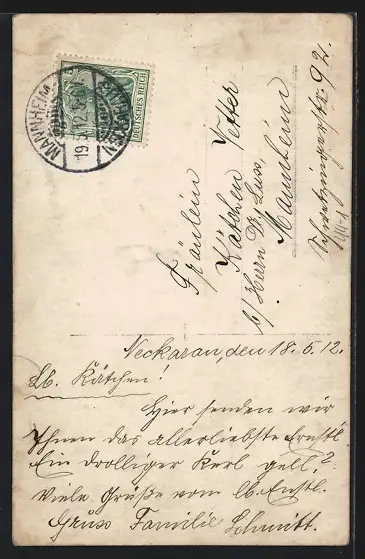 MANNHEIM
19.5.12.
NECKARAU
DEUTSCHES REICH
Fräulein
Kätchen Vetter
b/ Herrn Dr. Luss,
Mannheim
Schwetzingerstr. 92.
Neckarau, den 18. 5. 12.
Lb. Kätchen!
Hier senden wir
Ihnen das allerliebste Ernstl
Ein drolliger Kerl gell?
Viele Grüße vom lb. Ernstl.
Gruss Familie Schmitt.